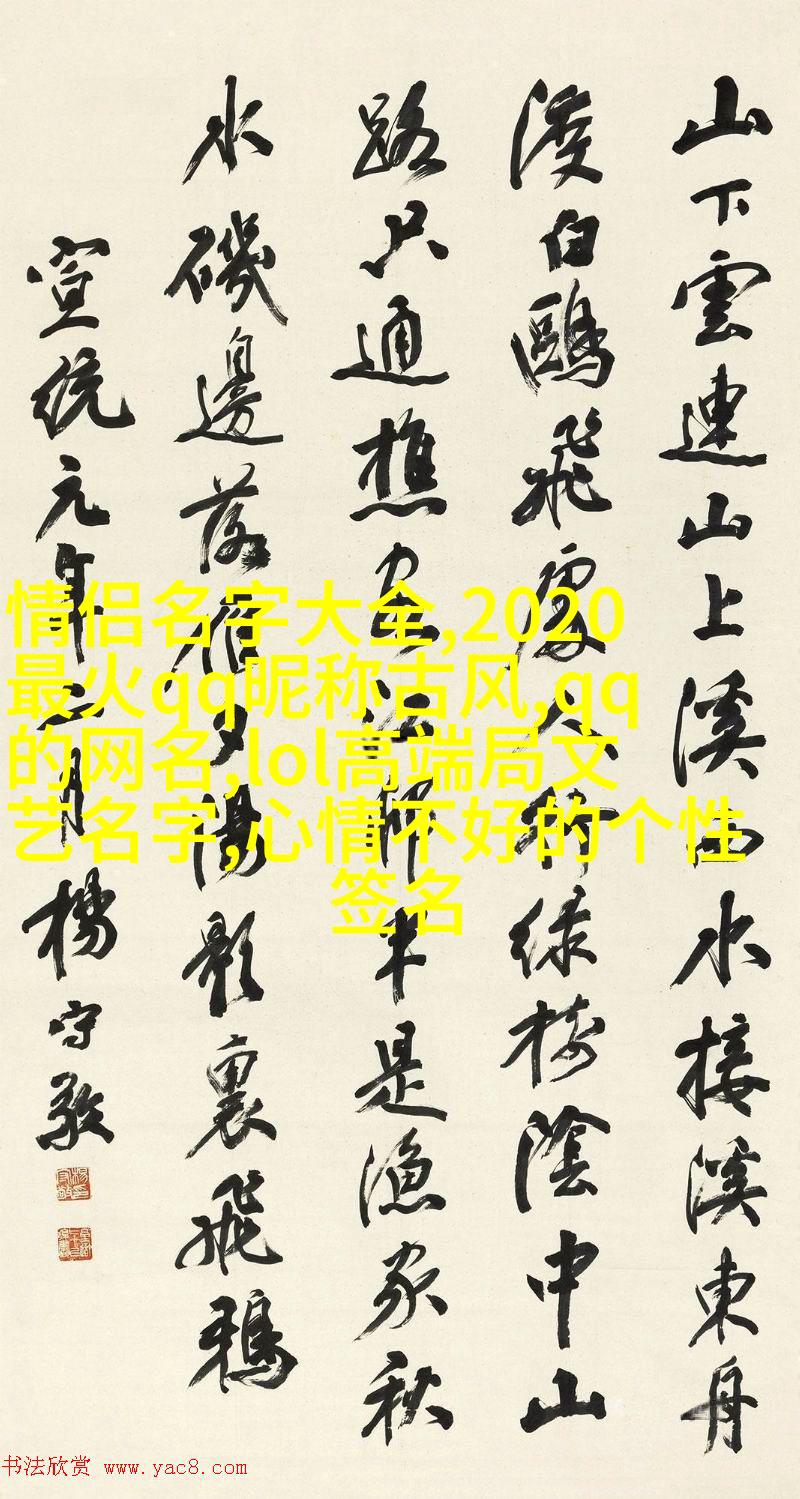 山下雲連山上溪西水接溪東舟
渡白鷗飛處人行綠樹陰中山
路只通樵客江邨半是漁家秋
水磯邊落雁夕陽影裏飛鴉
宣統元年二月楊守敬
情侣名字大全,2020
最火qq昵称古风,qq
的网名,lol高端局文
艺名字,心情不好的个性
签名
书法欣赏 www.yac8.com